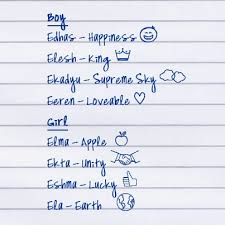 Boy
Edhas - Happiness
Elesh - King
Ekadyu - Supreme Sky
Eeren - Loveable
Girl
Elma - Apple
Ekta - Unity
Eshma - Lucky
Ela - Earth